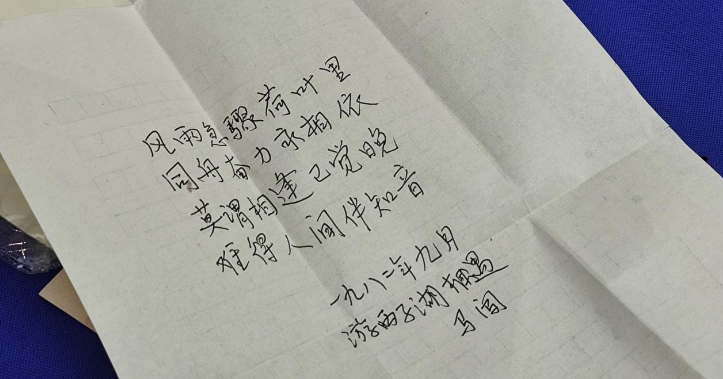 风雨急骤荷叶里
同舟奋力求相依
莫谓相逢已觉晚
难得人间伴知音
一九八二年九月
游西子湖相遇
马闯